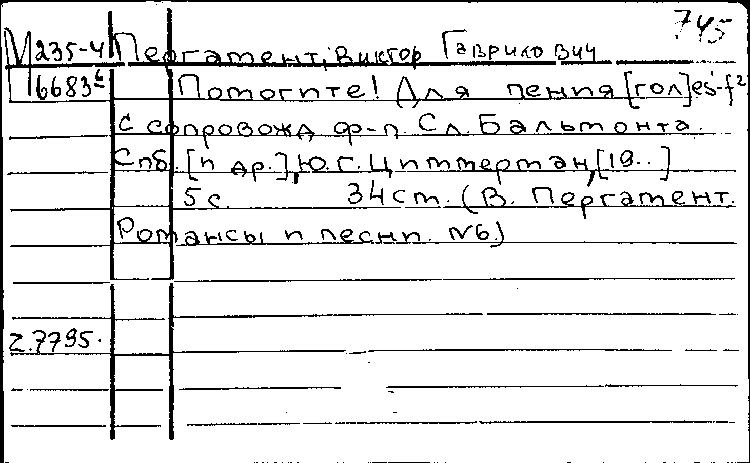 745
М 235-4 Пергамент, Виктор Гаврилович
6683⁶ Помогите! Для пения [гол] es¹-f²
с сопровожд ф-п. Сл. Бальмонта.
Спб. [и др.], Ю.Г. Циммерман, [19..]
5 с. 34 см. (В. Пергамент.
Романсы и песни. №6)
2.7795.